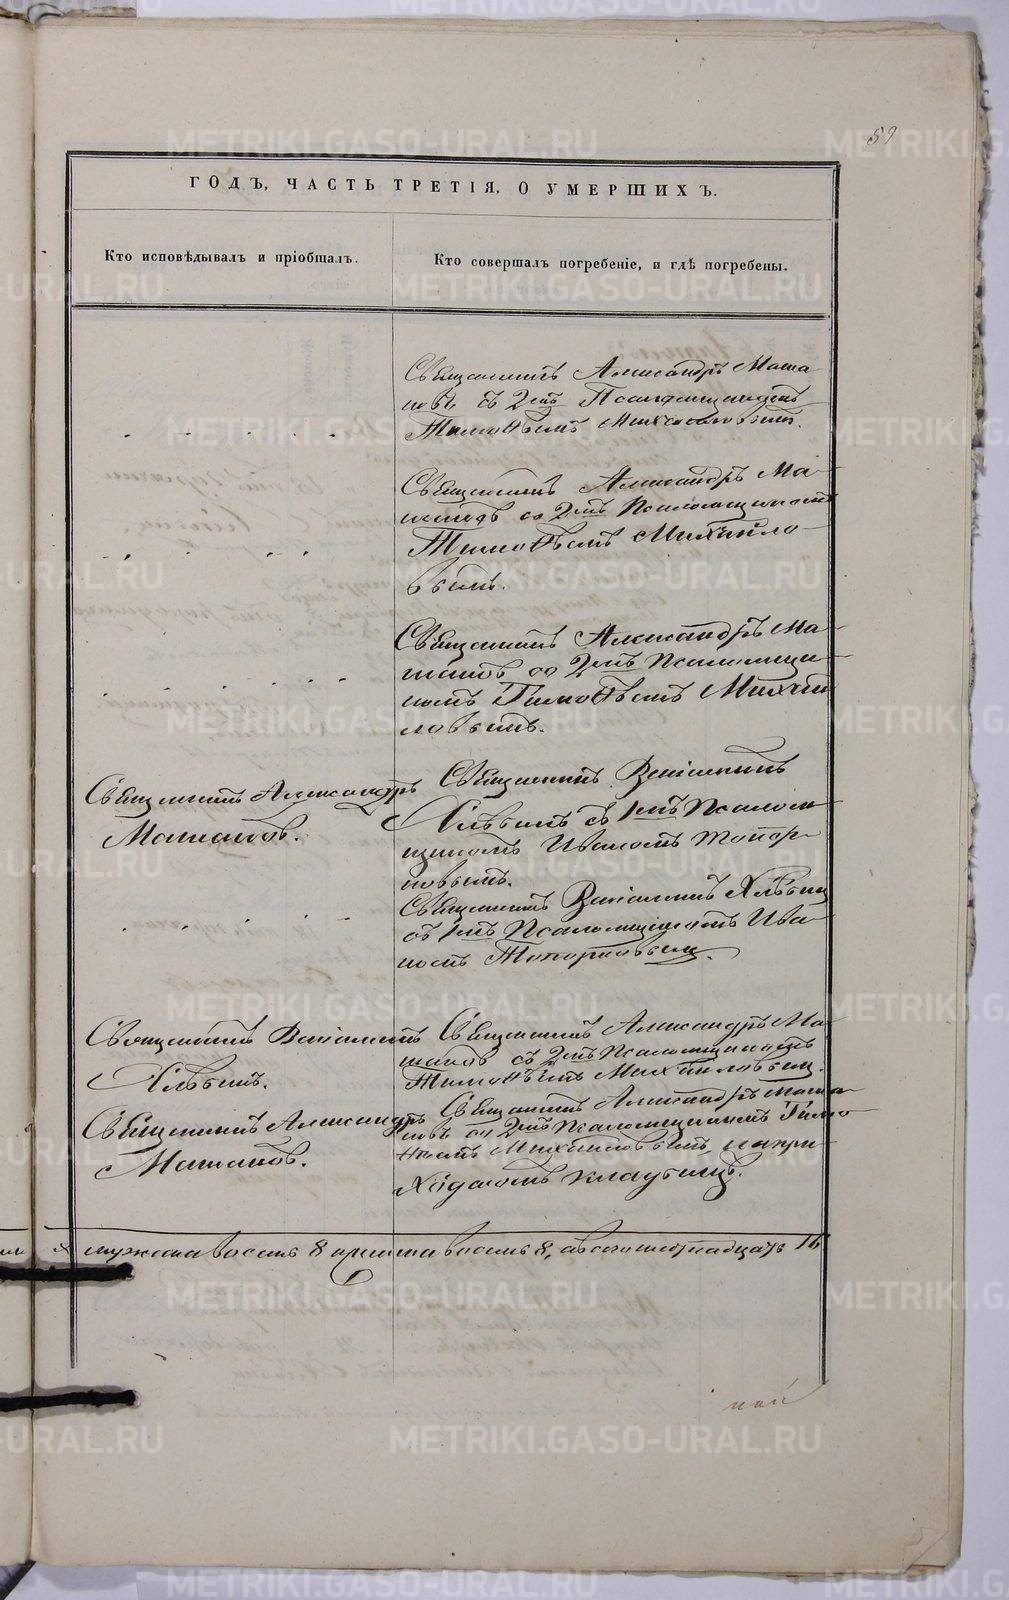 59
ГОДЪ, ЧАСТЬ ТРЕТІЯ, О УМЕРШИХЪ.
Кто исповѣдывалъ и пріобщалъ.
Кто совершалъ погребеніе, и гдѣ погребены.
Священникъ Александръ Мата
новъ съ 2мъ Псаломщикомъ
Тимоѳѣемъ Михайловымъ.
Священникъ Александръ Ма-
со 2мъ Псаломщикомъ
Тимоѳѣемъ Михайло-
вымъ.
Священникъ Александръ Ма-
со 2мъ Псаломщи-
комъ Тимоѳѣемъ Михай
ловымъ.
Священникъ Александръ
Священникъ
съ 1мъ Псалом
щикомъ Иваномъ Топор-
ковымъ.
Священникъ
съ 1мъ Псаломщикомъ Ива-
номъ Топорковымъ.
Священникъ
Священникъ Александръ Ма
съ 2мъ Псаломщикомъ
Тимоѳѣемъ Михайловымъ.
Священникъ Александръ
Священникъ Александръ
новъ со 2мъ Псаломщикомъ Тимо
ѳѣемъ Михайловымъ, на при-
ходскомъ кладбищѣ.
мужска восемь 8 и женска восемь 8, а всего шестнадцать 16
METRIKI.GASO-URAL.RU